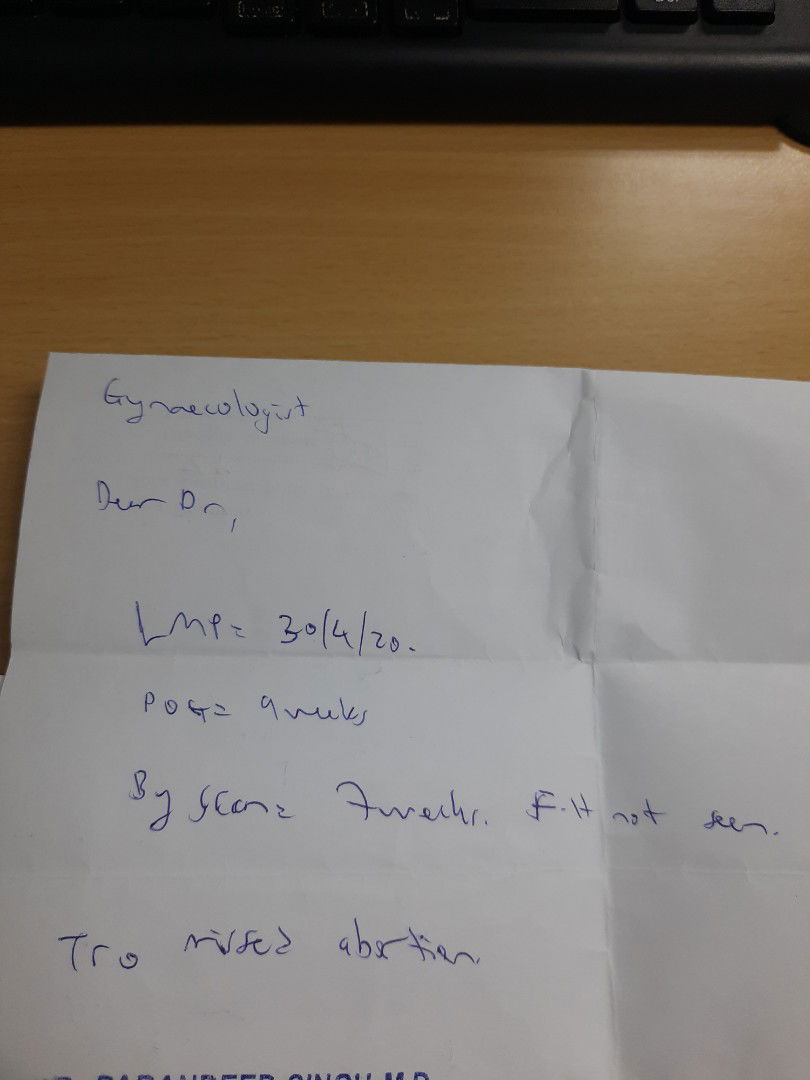 Gynaecologist
Dear Dr,
LMP= 30/4/20.
POG= 9 weeks
By scan= 7 weeks. F.H not seen.
TRO missed abortion.